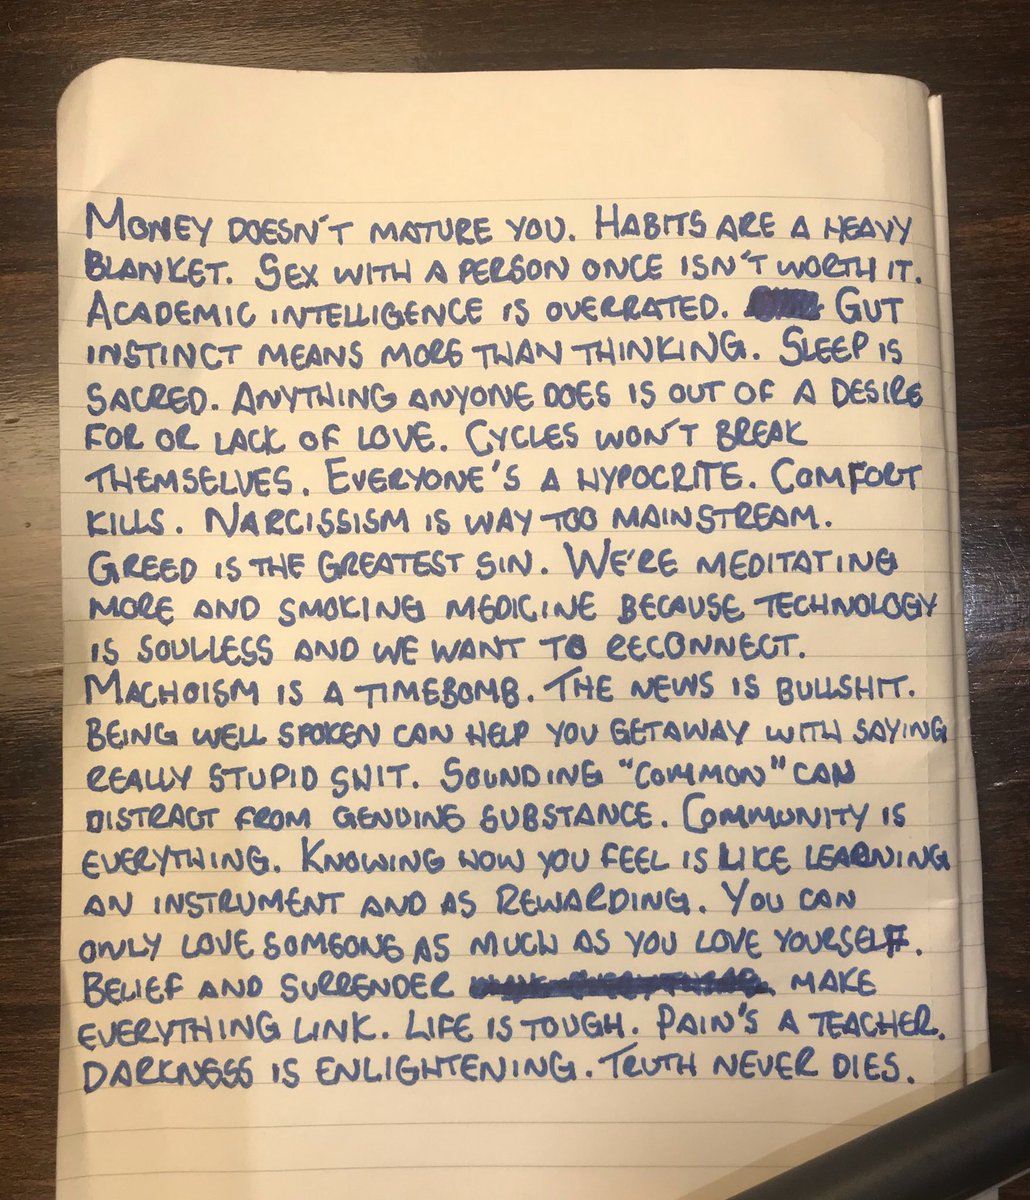 MONEY DOESN'T MATURE YOU. HABITS ARE A HEAVY
BLANKET. SEX WITH A PERSON ONCE ISN'T WORTH IT.
ACADEMIC INTELLIGENCE IS OVERRATED. GUT
INSTINCT MEANS MORE THAN THINKING. SLEEP IS
SACRED. ANYTHING ANYONE DOES IS OUT OF A DESIRE
FOR OR LACK OF LOVE. CYCLES WON'T BREAK
THEMSELVES. EVERYONE'S A HYPOCRITE. COMFORT
KILLS. NARCISSISM IS WAY TOO MAINSTREAM.
GREED IS THE GREATEST SIN. WE'RE MEDITATING
MORE AND SMOKING MEDICINE BECAUSE TECHNOLOGY
IS SOULLESS AND WE WANT TO RECONNECT.
MACHOISM IS A TIMEBOMB. THE NEWS IS BULLSHIT.
BEING WELL SPOKEN CAN HELP YOU GETAWAY WITH SAYING
REALLY STUPID SHIT. SOUNDING "COMMON" CAN
DISTRACT FROM GENUINE SUBSTANCE. COMMUNITY IS
EVERYTHING. KNOWING HOW YOU FEEL IS LIKE LEARNING
AN INSTRUMENT AND AS REWARDING. YOU CAN
ONLY LOVE SOMEONE AS MUCH AS YOU LOVE YOURSELF.
BELIEF AND SURRENDER MAKE
EVERYTHING LINK. LIFE IS TOUGH. PAIN'S A TEACHER.
DARKNESS IS ENLIGHTENING. TRUTH NEVER DIES.